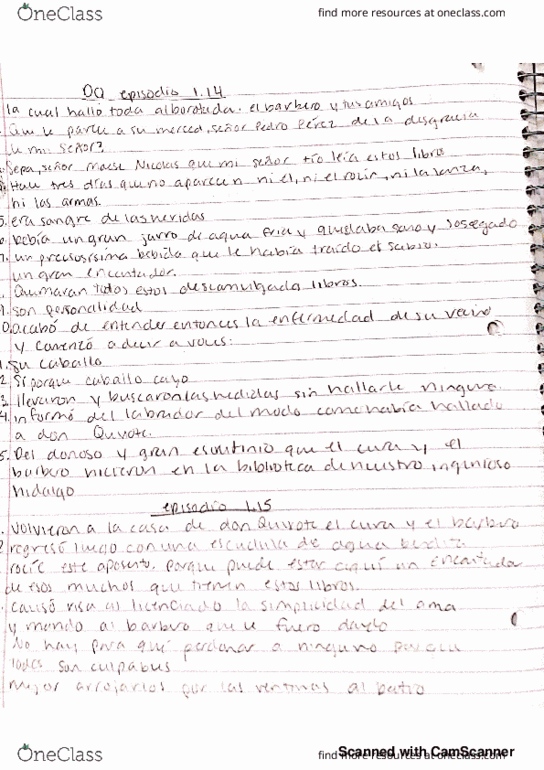 OneClass
find more resources at oneclass.com
DQ episodio 1.14
la cual hallo toda alborotada. el barbero y tus amigos
le parece a su merced, señor Pedro Pérez de la desgracia
mi señor?
Sepa, señor maese Nicolas que mi señor tío leía estos libro
tres días que no aparecen ni el, ni el rocin, ni la lanza,
ni las armas.
5. era sangre de las heridas
bebía un gran jarro de agua fria y quedaba sano y sosegado
7. un preciosisima bebida que le había traído el sabio.
un gran encantador.
Quemaran todos estos descomulgados libros.
son personalidad
acabó de entender entonces la enfermedad de su vecino
y comenzó a decir a voces:
su caballo
2. Si porque caballo cayo
3. llevaron y buscaron las heridas sin hallarle ninguna
4. informó del labrador del modo como había hallado
a don Quixote.
5. Del donoso y gran escrutinio que el cura y el
barbero hicieron en la biblioteca de nuestro ingenioso
hidalgo
episodio 1.15
volvieron a la casa de don Quixote el cura y el barbero
regresó luego con una escudilla de agua bendita
rocíe este aposento, porque puede estar aquí un encantador
de esos muchos que tienen estos libros.
causó risa al licenciado la simplicidad del ama
y mando al barbero que le fuero dando
No hay para qué perdonar a ninguno porque
todos son culpables
mejor arrojarlos por las ventanas al patio
OneClass
find more resources at oneclass.com
Scanned with CamScanner